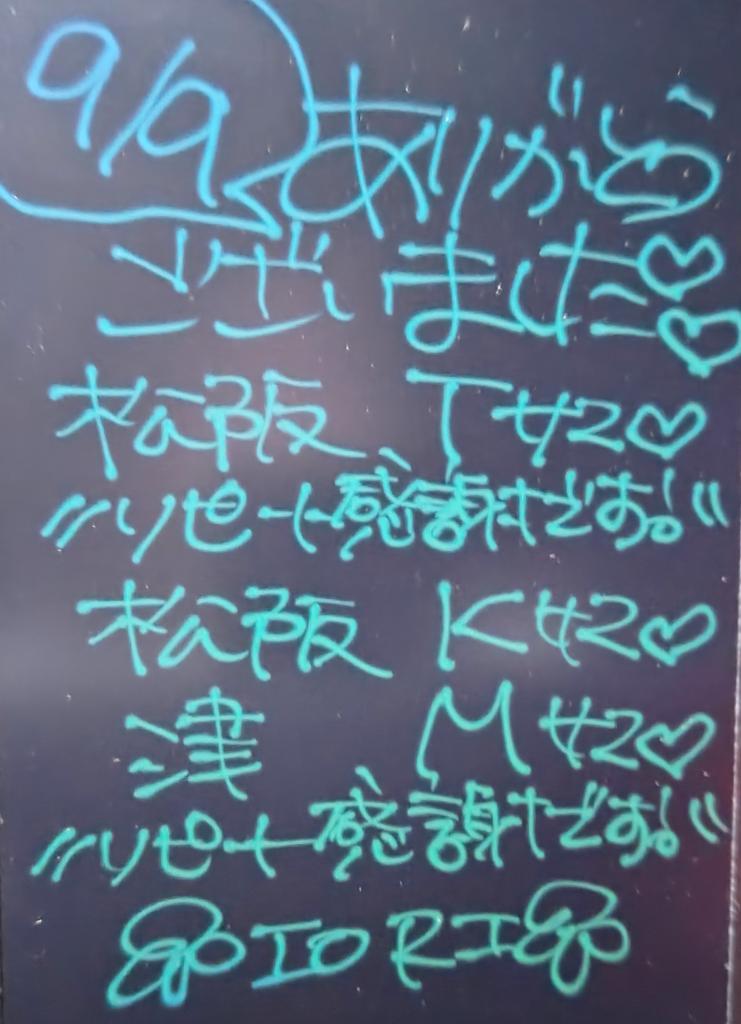 9/9 ありがとう
ございました♡♡
松阪 Tサン♡
〃リピート感謝です!〃
松阪 Kサン♡
津 Mサン♡
〃リピート感謝です!〃
IORI